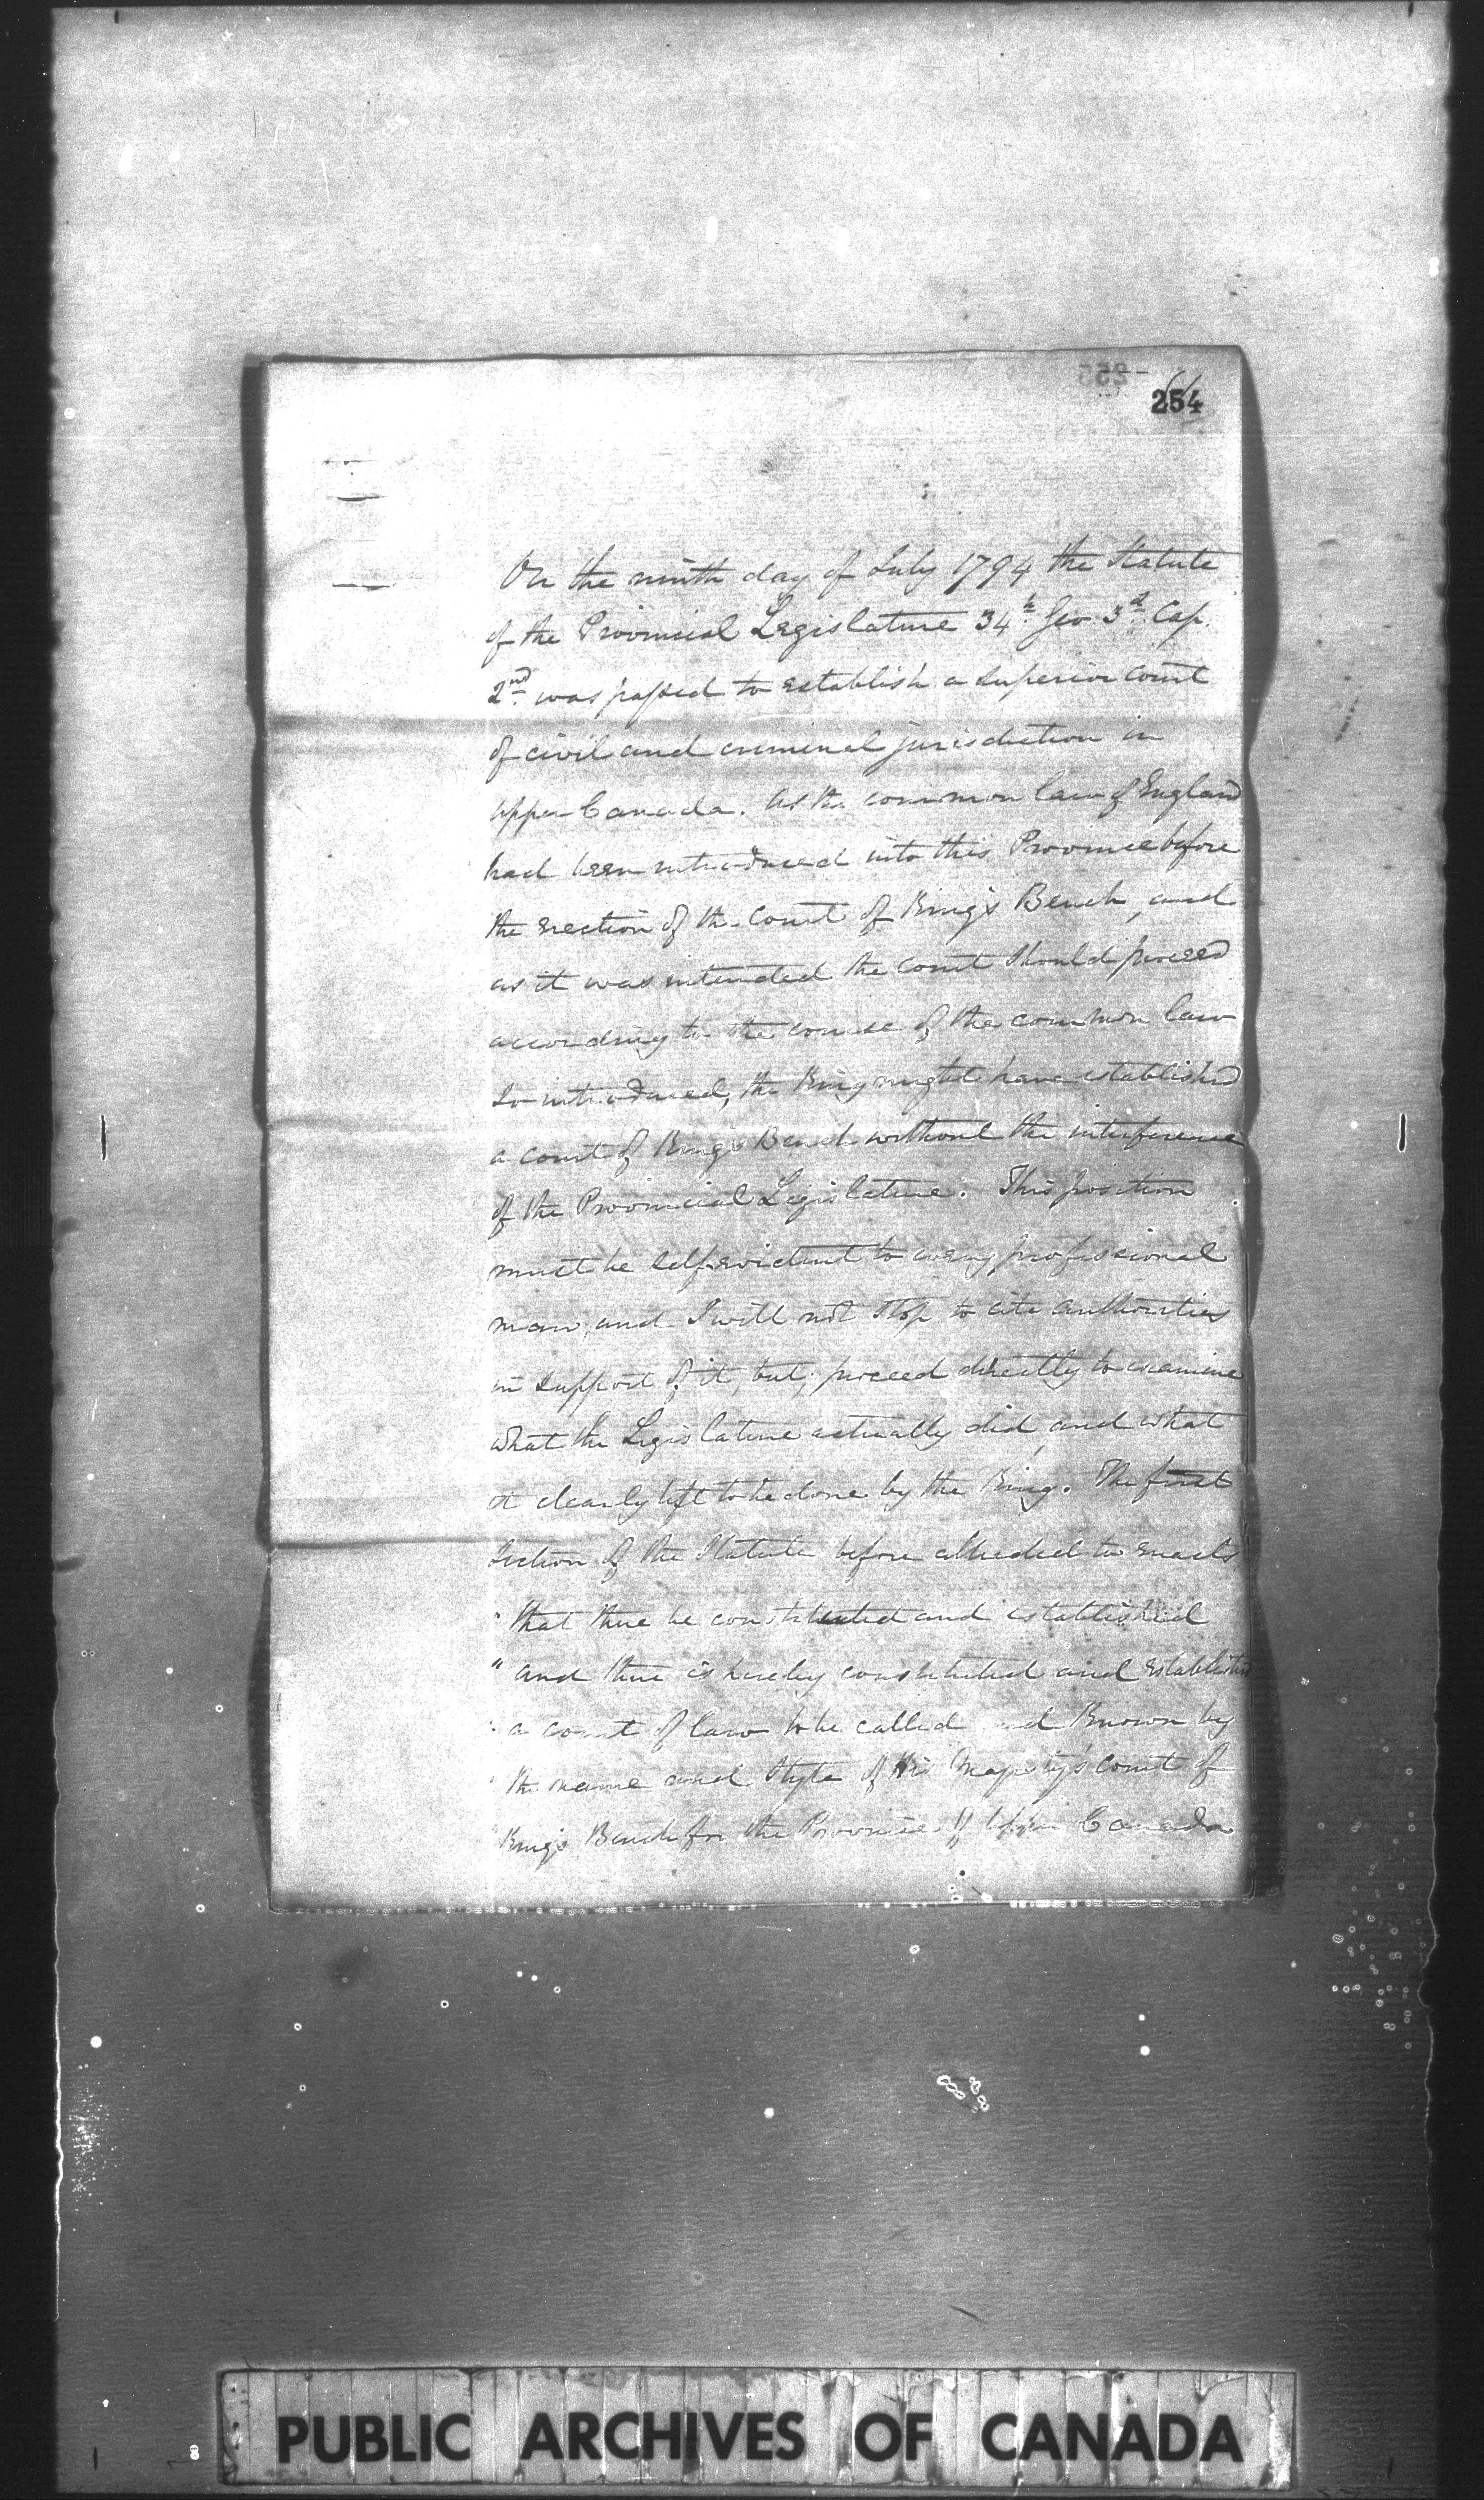 254
On the ninth day of July 1794 the Statute
of the Provincial Legislature 34th Geo 3d Cap.
2nd was passed to establish a superior court
of civil and criminal jurisdiction in
Upper Canada. As the common law of England
had been introduced into this Province before
the erection of the Court of King's Bench, and
as it was intended the court should proceed
according to the course of the common law
so introduced, the King might have established
a court of King's Bench without the interference
of the Provincial Legislature. This position
must be self evident to every professional
man, and I will not stop to cite authorities
in support of it, but, proceed directly to examine
what the Legislature actually did, and what
it clearly left to be done by the King. The first
section of the Statute before alluded to enacts
" that there be constituted and established
" and there is hereby constituted and established
" a court of law to be called and known by
" the name and style of His Majesty's court of
" King's Bench for the Province of Upper Canada
PUBLIC ARCHIVES OF CANADA